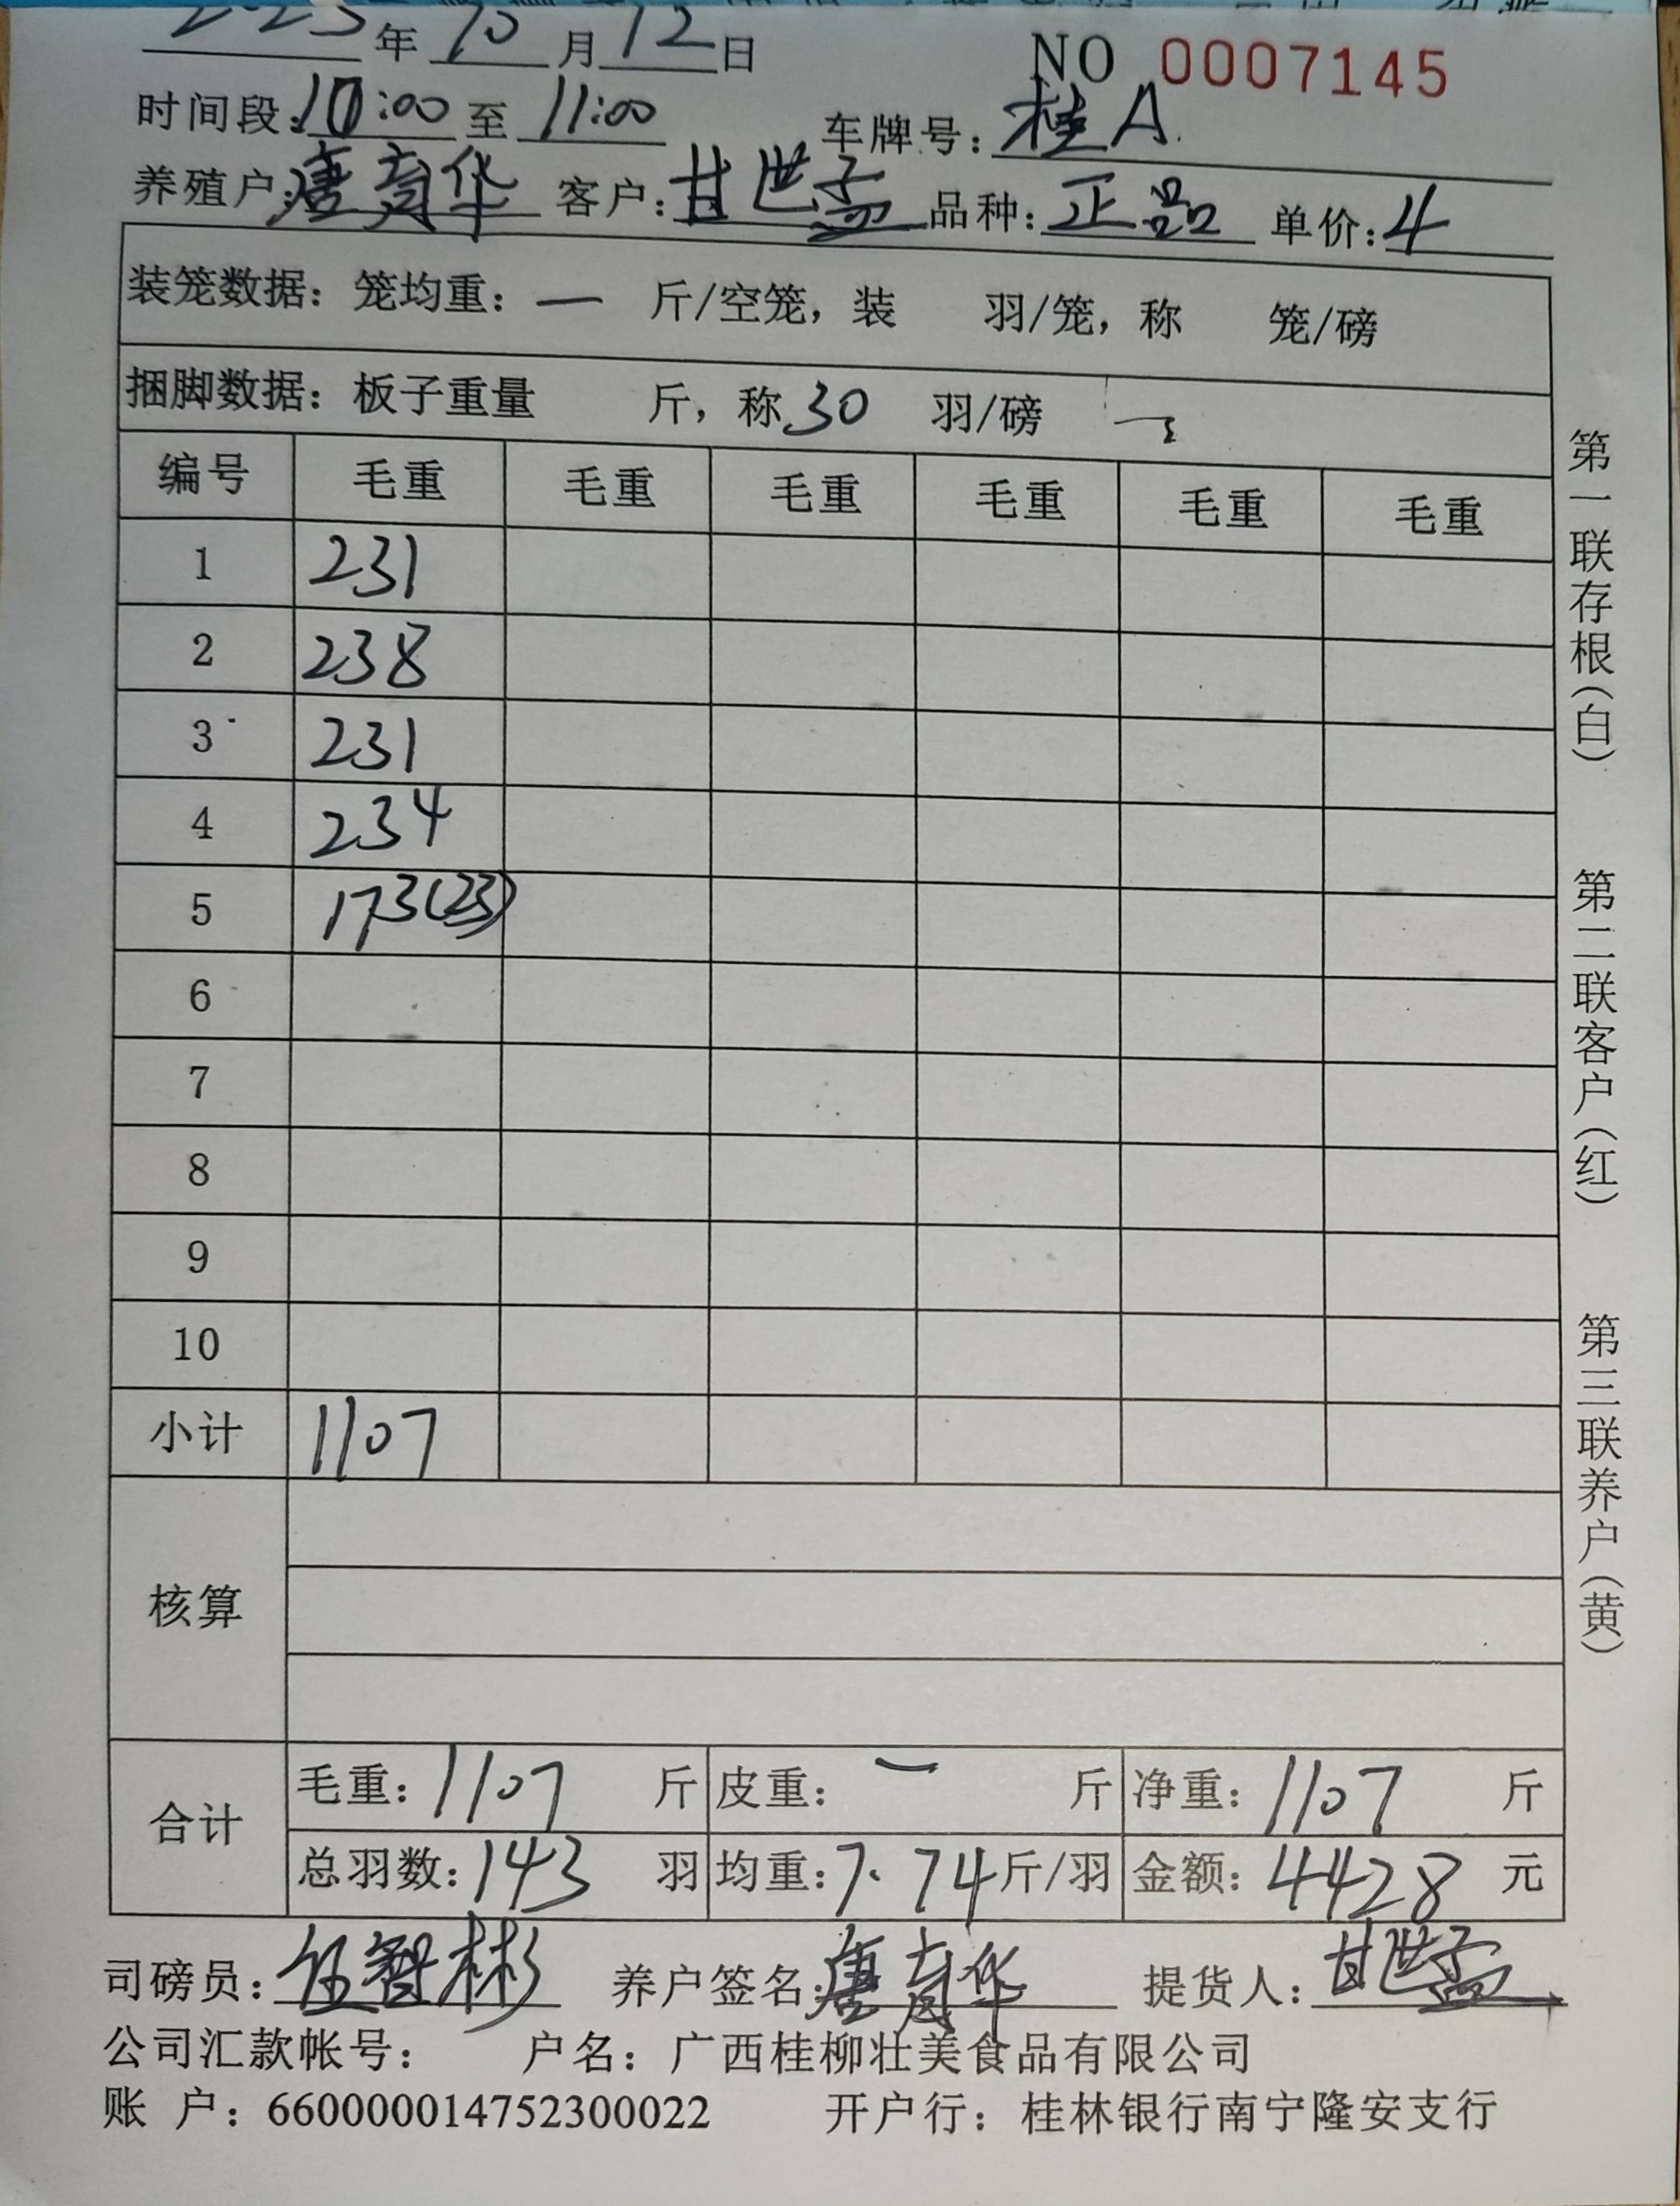 2023年10月12日 NO 0007145
时间段:10:00至11:00 车牌号:桂A
养殖户:唐育华 客户:甘世孟 品种:正品 单价:4
装笼数据:笼均重:一 斤/空笼,装 羽/笼,称 笼/磅
捆脚数据:板子重量 斤,称30 羽/磅
编号 毛重 毛重 毛重 毛重 毛重 毛重
1 231
2 238
3 231
4 234
5 173(23)
6
7
8
9
10
小计 1107
核算
合计 毛重:1107 斤 皮重:一 斤 净重:1107 斤
总羽数:143 羽 均重:7.74斤/羽 金额:4428 元
司磅员:伍智彬 养户签名:唐育华 提货人:甘世孟
公司汇款帐号: 户名:广西桂柳壮美食品有限公司
账 户:660000014752300022 开户行:桂林银行南宁隆安支行
第一联存根(白) 第二联客户(红) 第三联养户(黄)